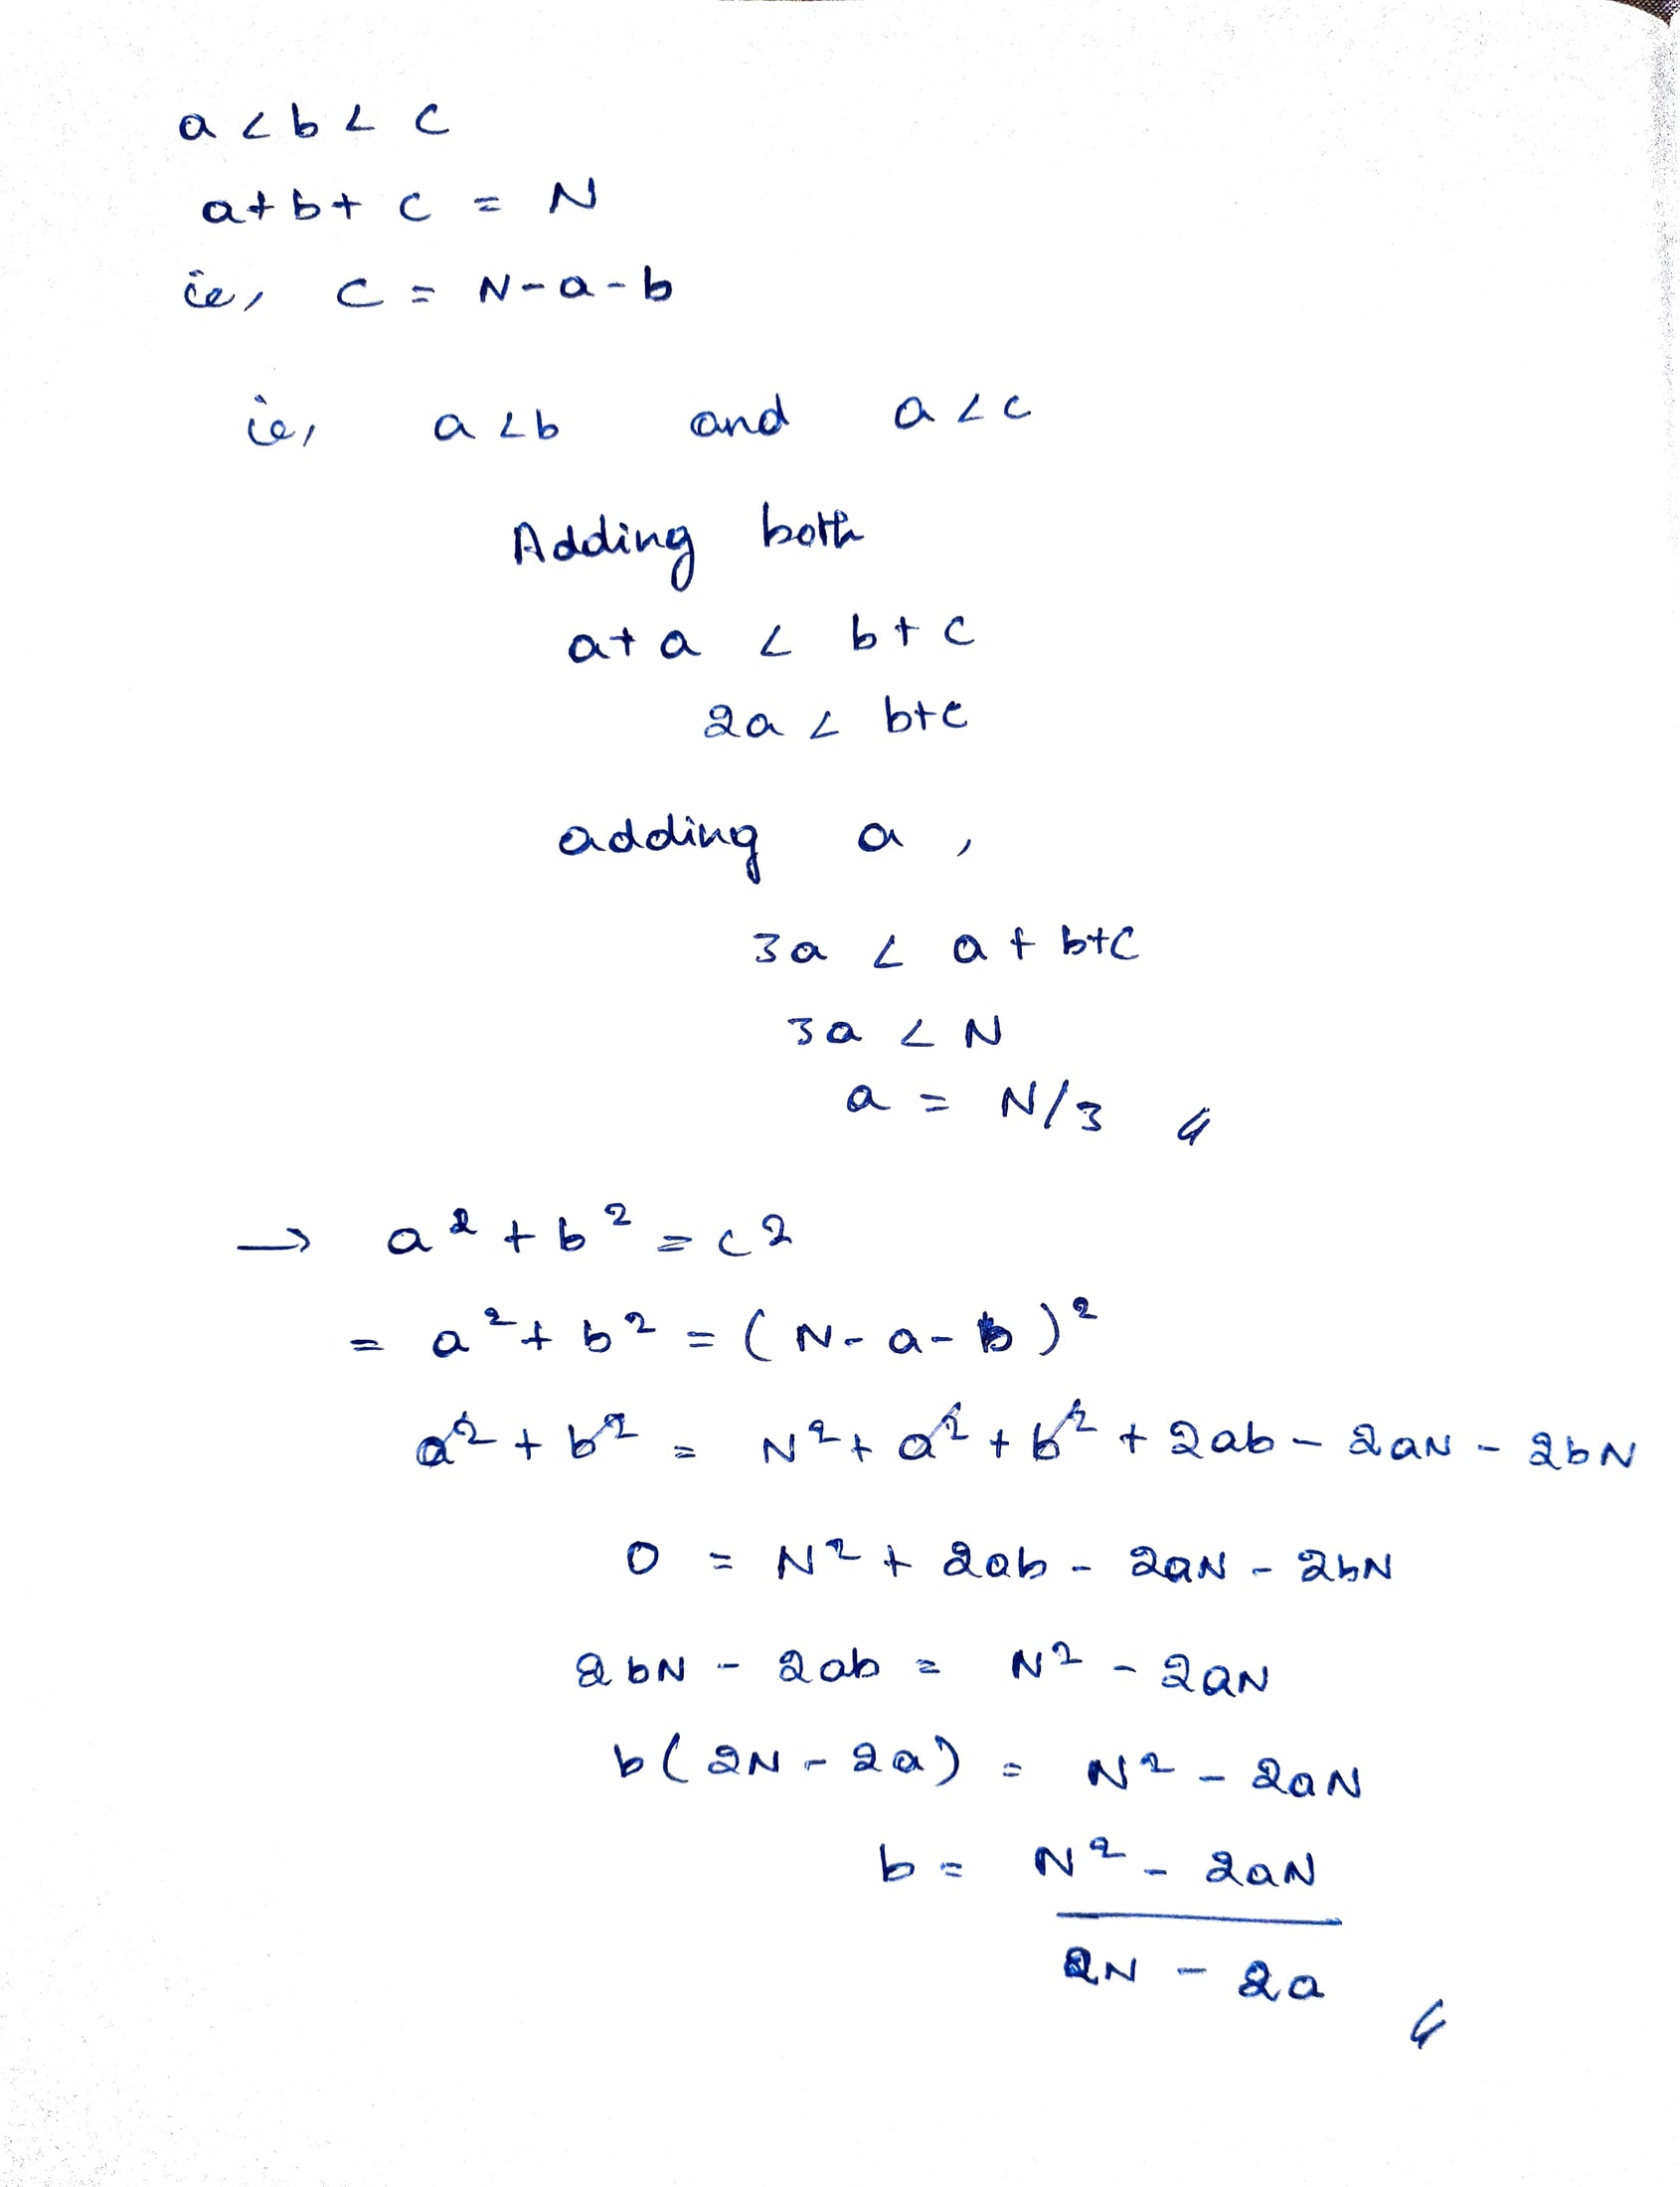 a < b < c
a + b + c = N
ie, c = N - a - b
ie, a < b and a < c
Adding both
a + a < b + c
2a < b + c
adding a,
3a < a + b + c
3a < N
a = N/3
→ a² + b² = c2
= a² + b² = (N - a - b)²
a² + b² = N² + a² + b² + 2ab - 2aN - 2bN
0 = N² + 2ab - 2aN - 2bN
2bN - 2ab = N² - 2aN
b(2N - 2a) = N² - 2aN
b = N² - 2aN
2N - 2a